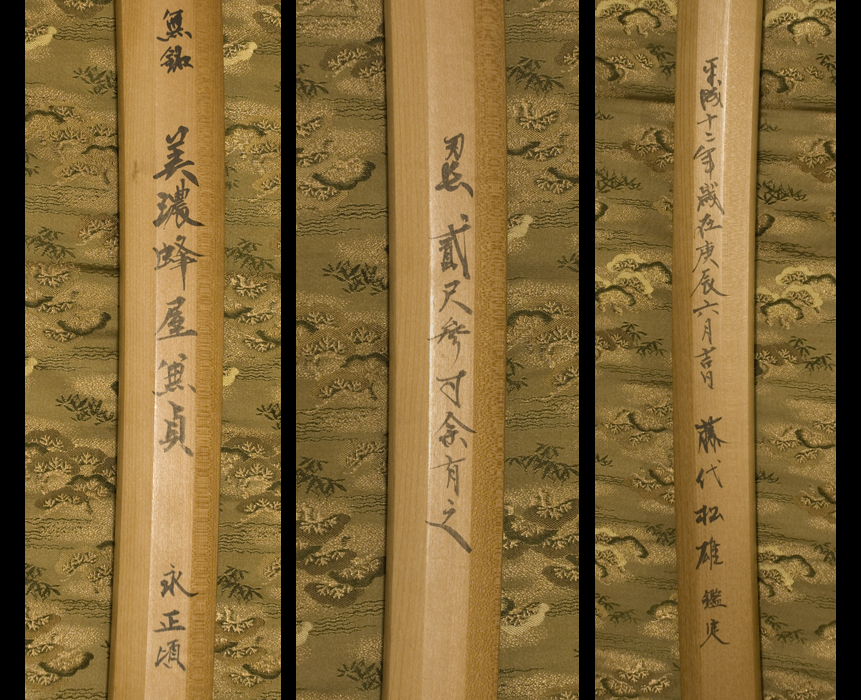 無銘 美濃蜂屋兼貞 永正頃
刃長 貳尺参寸余有之
平成十二年歳在庚辰六月吉日 藤代松雄 鑑定